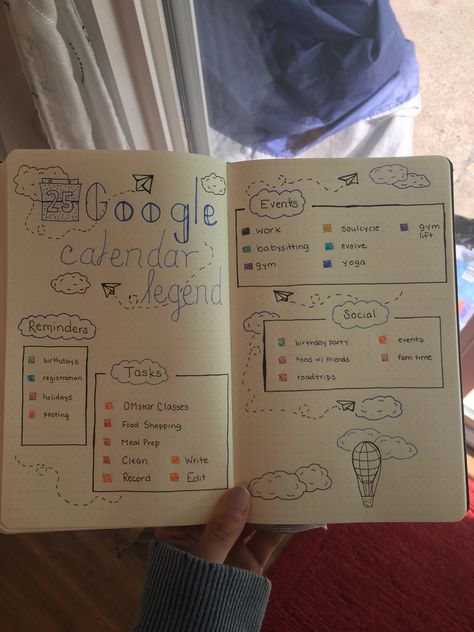 25
Google
calendar
legend
Reminders
birthdays
registration
holidays
posting
Tasks
OMstar Classes
Food Shopping
Meal Prep
Clean
Write
Record
Edit
Events
work
soulcycle
gym
lift
babysitting
evolve
gym
yoga
Social
birthday party
events
food w/ friends
fam time
roadtrips